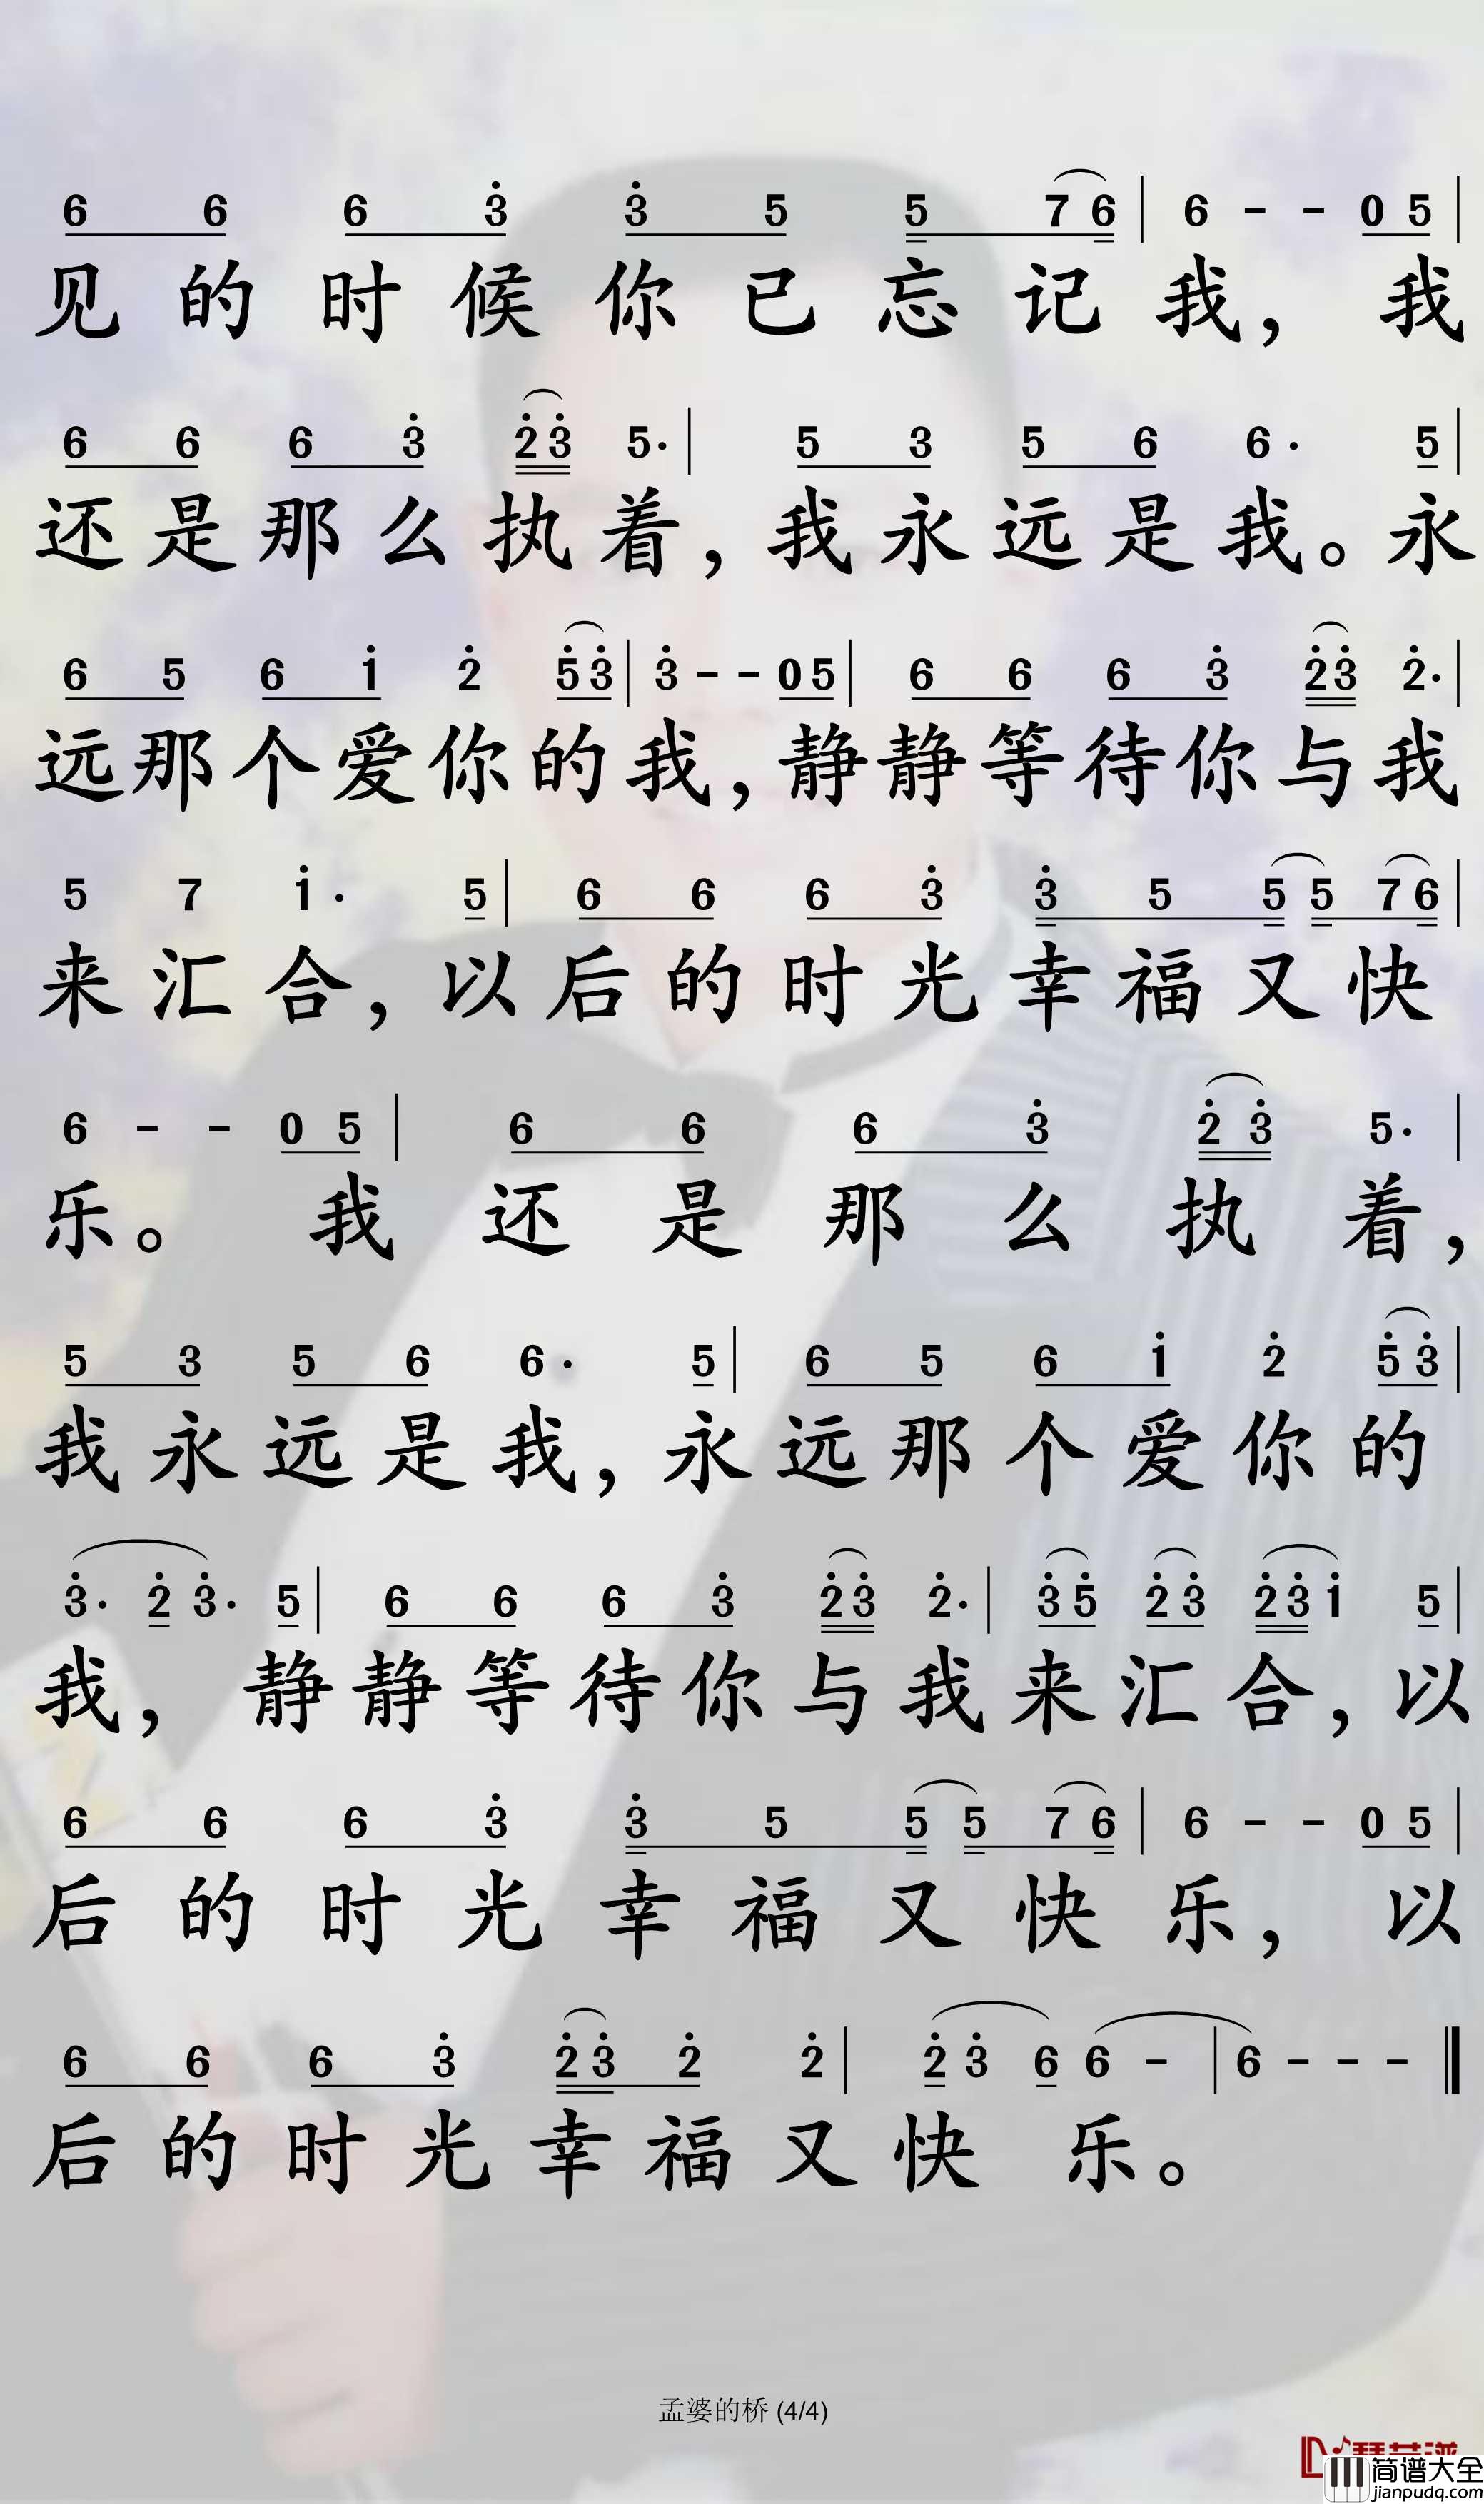 6 6 6 3 3 5 5 7 6 | 6 - - 0 5 |
见的时候你已忘记我，我
6 6 6 3 2 3 5· | 5 3 5 6 6· 5 |
还是那么执着，我永远是我。永
6 5 6 1 2 5 3 | 3 - - 0 5 | 6 6 6 3 2 3 2· |
远那个爱你的我，静静等待你与我
5 7 1· 5 | 6 6 6 3 3 5 5 5 7 6 |
来汇合，以后的时光幸福又快
6 - - 0 5 | 6 6 6 3 2 3 5· |
乐。我还是那么执着，
5 3 5 6 6· 5 | 6 5 6 1 2 5 3 |
我永远是我，永远那个爱你的
3· 2 3· 5 | 6 6 6 3 2 3 2· | 3 5 2 3 2 3 1 5 |
我，静静等待你与我来汇合，以
6 6 6 3 3 5 5 5 7 6 | 6 - - 0 5 |
后的时光幸福又快乐，以
6 6 6 3 2 3 2 2 | 2 3 6 6 - | 6 - - - ‖
后的时光幸福又快乐。
孟婆的桥 (4/4)
简谱大全
jianpudq.com